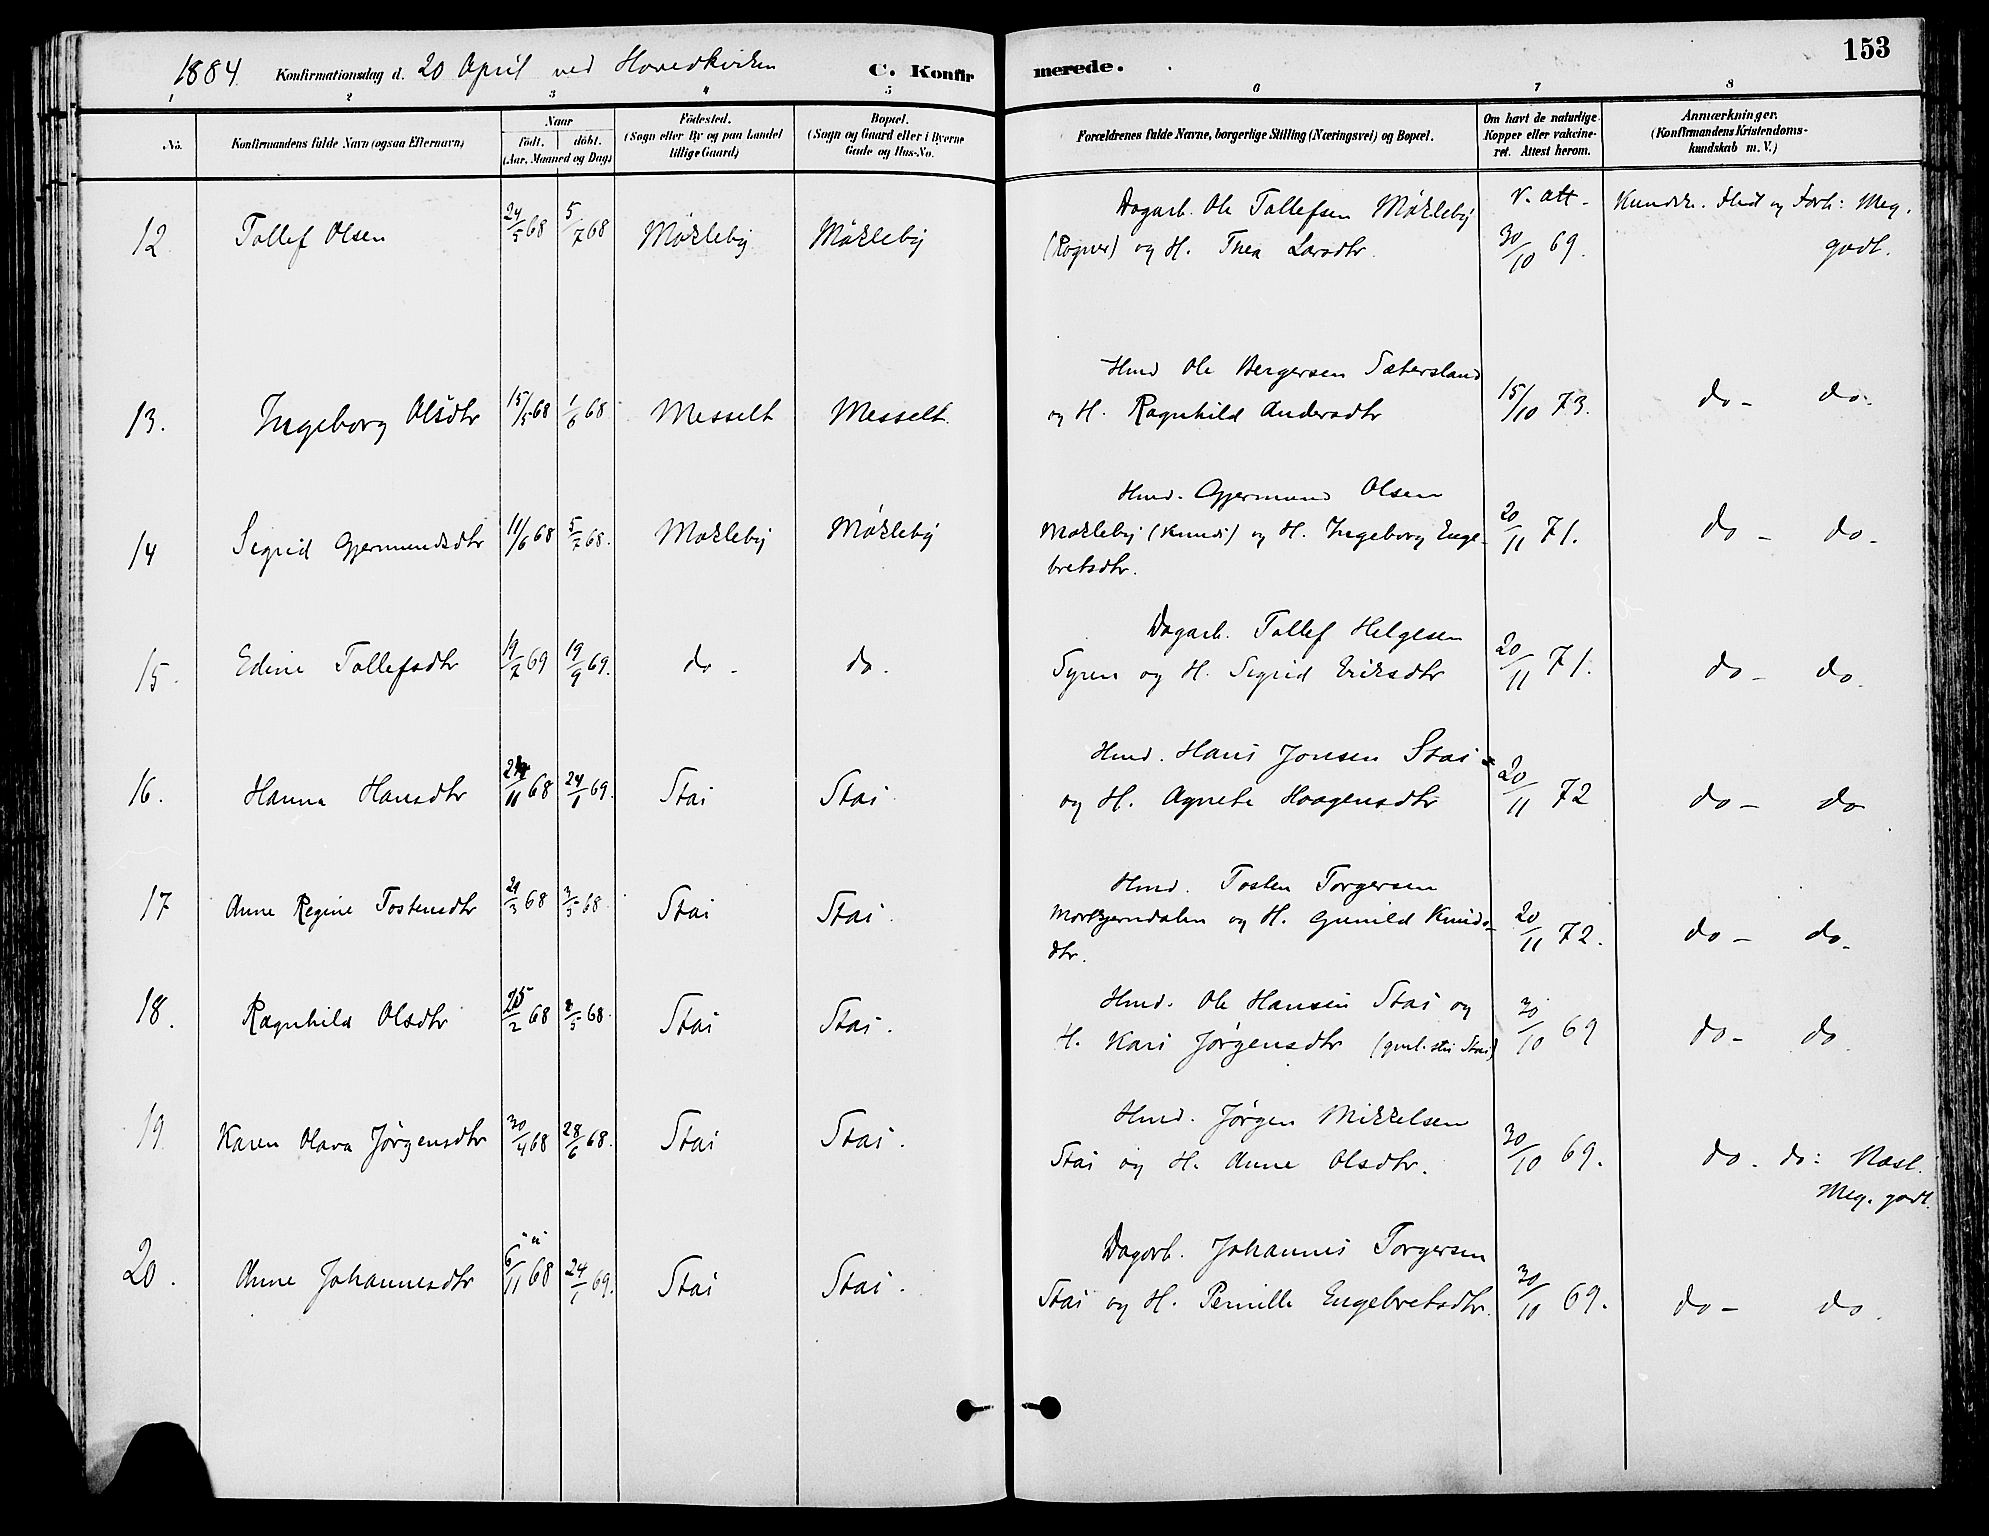 153
1884 Konfirmationsdag d. 20 April ved Hovedkirken C. Konfirmerede.
1 2 3 4 5 6 7 8
No. Konfirmandens fulde Navn (ogsaa Efternavn) Naar født. døbt. (Aar, Maaned og Dag) Fødested. (Sogn eller By og paa Landet tillige Gaard) Bopæl. (Sogn og Gaard eller i Byerne Gade og Hus-No. Forældrenes fulde Navne, borgerlige Stilling (Næringsvei) og Bopæl. Om havt de naturlige Kopper eller vakcineret. Attest herom. Anmærkninger. (Konfirmandens Kristendomskundskab m. V.)
12. Tollef Olsen 24/5 68 5/7 68 Møkleby Møkleby Dagarb. Ole Tollefsen Møkleby V. att. Kundsk. Flid og Forh: Meg.
(Rogner) og H. Thea Larsdtr. 30/10 69. godt.
13. Ingeborg Olsdtr 15/5 68 1/6 68 Messelt Messelt. Hmd Ole Bergersen Sætersland
og H. Ragnhild Andersdtr 15/10 73. do - do.
14 Sigrid Gjermundsdtr 11/6 68 5/7 68. Møkleby Møkleby Hmd. Gjermund Olsen
Møkleby (Kmds) og H. Ingeborg Enge- 20/11 71. do - do -
bretsdtr.
15. Edine Tollefsdtr 19/7 69 19/9 69. do - do. Dagarb. Tollef Helgesen
Syren og H. Sigrid Eriksdtr 20/11 71. do - do.
16. Hanna Hansdtr 24/11 68 24/1 69. Stai Stai Hmd. Hans Jonsen Stai
og H. Agnete Haagensdtr 20/11 72 do - do
17 Anne Regine Tostensdtr 29/3 68 3/5 68. Stai Stai. Hmd. Tosten Torgersen
Morkjerndalen og H. Gunild Knuds- 20/11 72. do - do -
dtr.
18. Ragnhild Olsdtr 25/2 68 3/5 68. Stai Stai. Hmd. Ole Hansen Stai og
H. Kari Jørgensdtr 30/10 69 do - do
19 Karen Olava Jørgensdtr 30/4 68 28/6 68. Stai Stai. Hmd. Jørgen Mikkelsen
Stai og H. Anne Olsdtr. 30/10 69. do. do: Næst.
Meg. godt.
20. Anne Johannesdtr 6/11 68 24/1 69. Stai Stai. Dagarb. Johannes Torgersen
Stai og H. Pernille Engebretsdtr. 30/10 69. do - do.